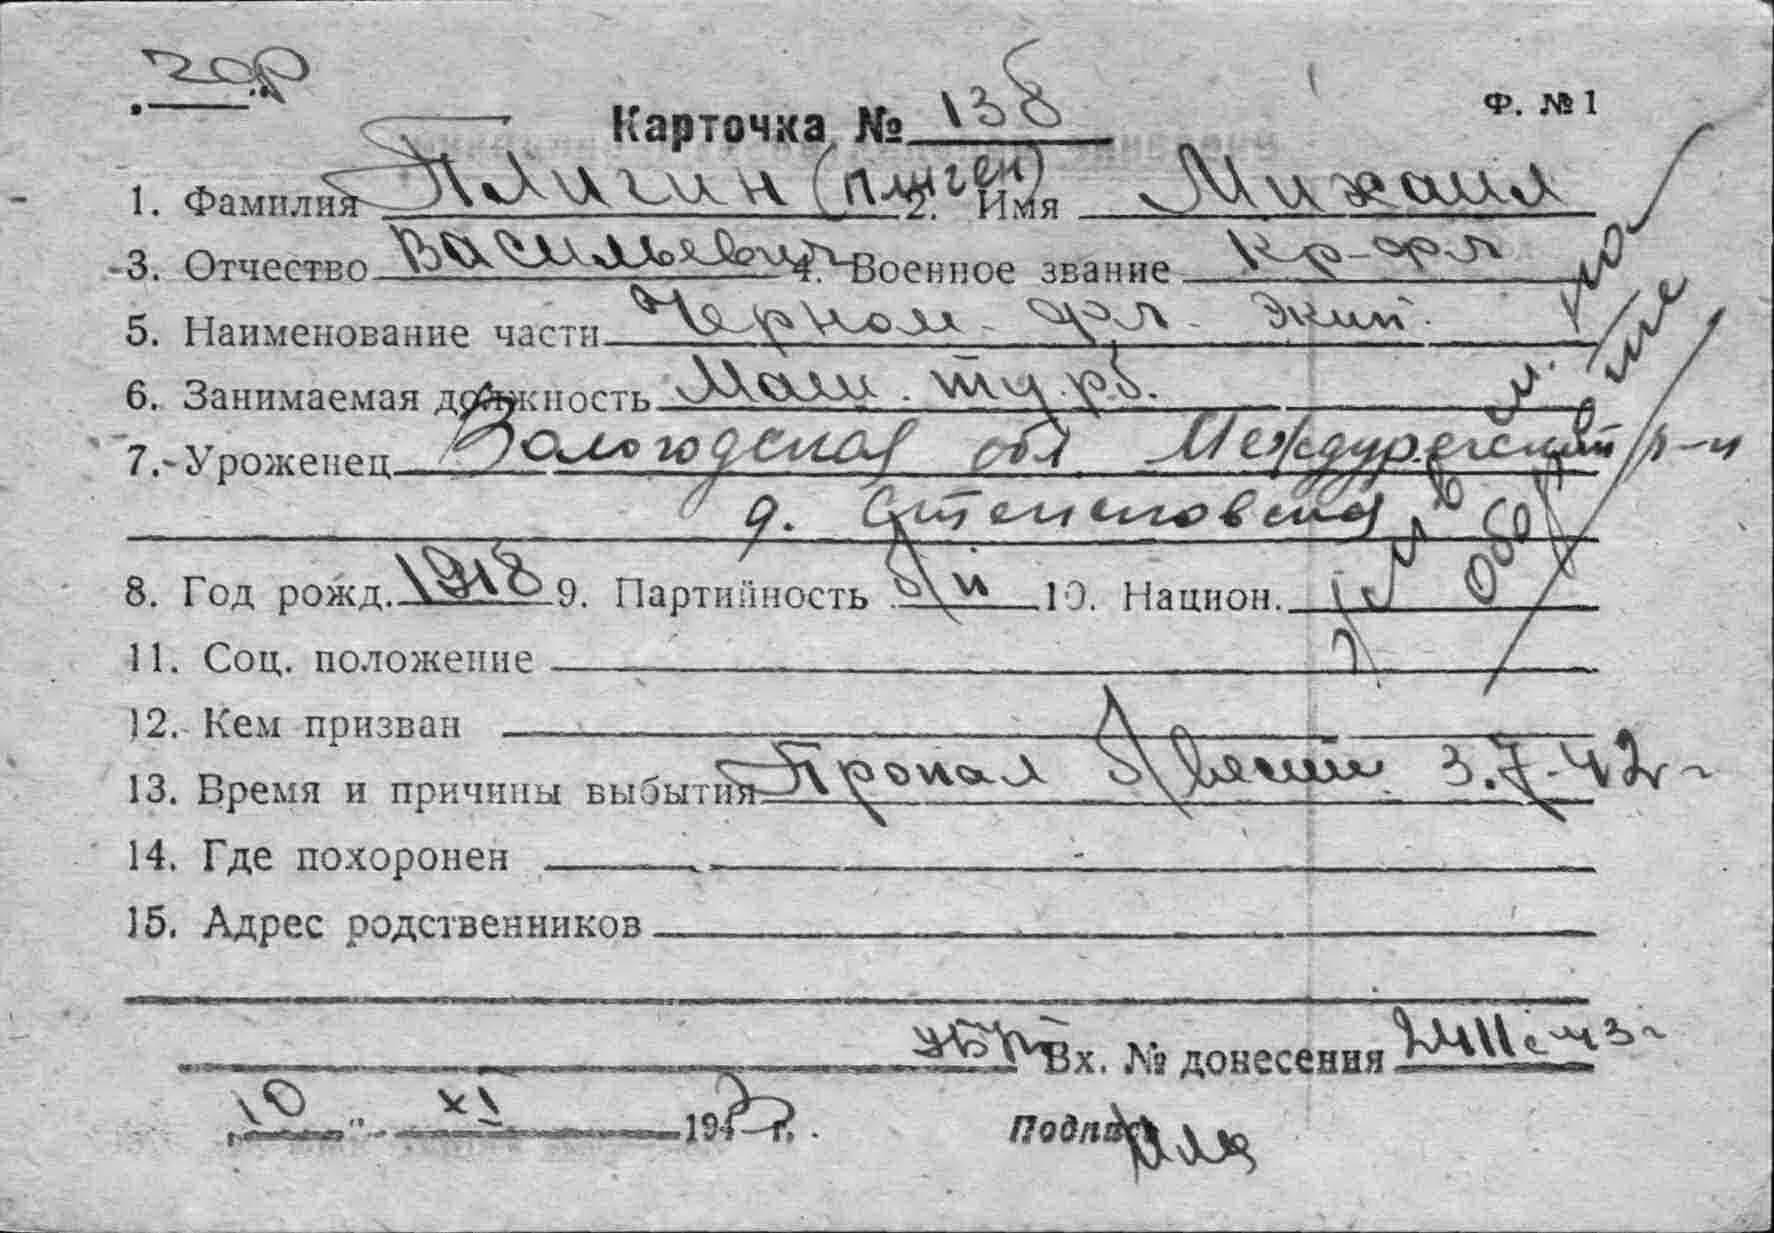 Карточка № 138
Ф. № 1
1. Фамилия Плигин (Плиген) 2. Имя Михаил
3. Отчество Васильевич 4. Военное звание Кр-фл
5. Наименование части Черном. фл. экип.
6. Занимаемая должность Маш. турб.
7. Уроженец Вологодская обл Междуреченский р-н
д.
8. Год рожд. 1918 9. Партийность б/п 10. Национ.
11. Соц. положение
12. Кем призван
13. Время и причины выбытия Пропал б/вести 3.7.42г
14. Где похоронен
15. Адрес родственников
Вх. № донесения
"10" XI 1943 г.
Подпись